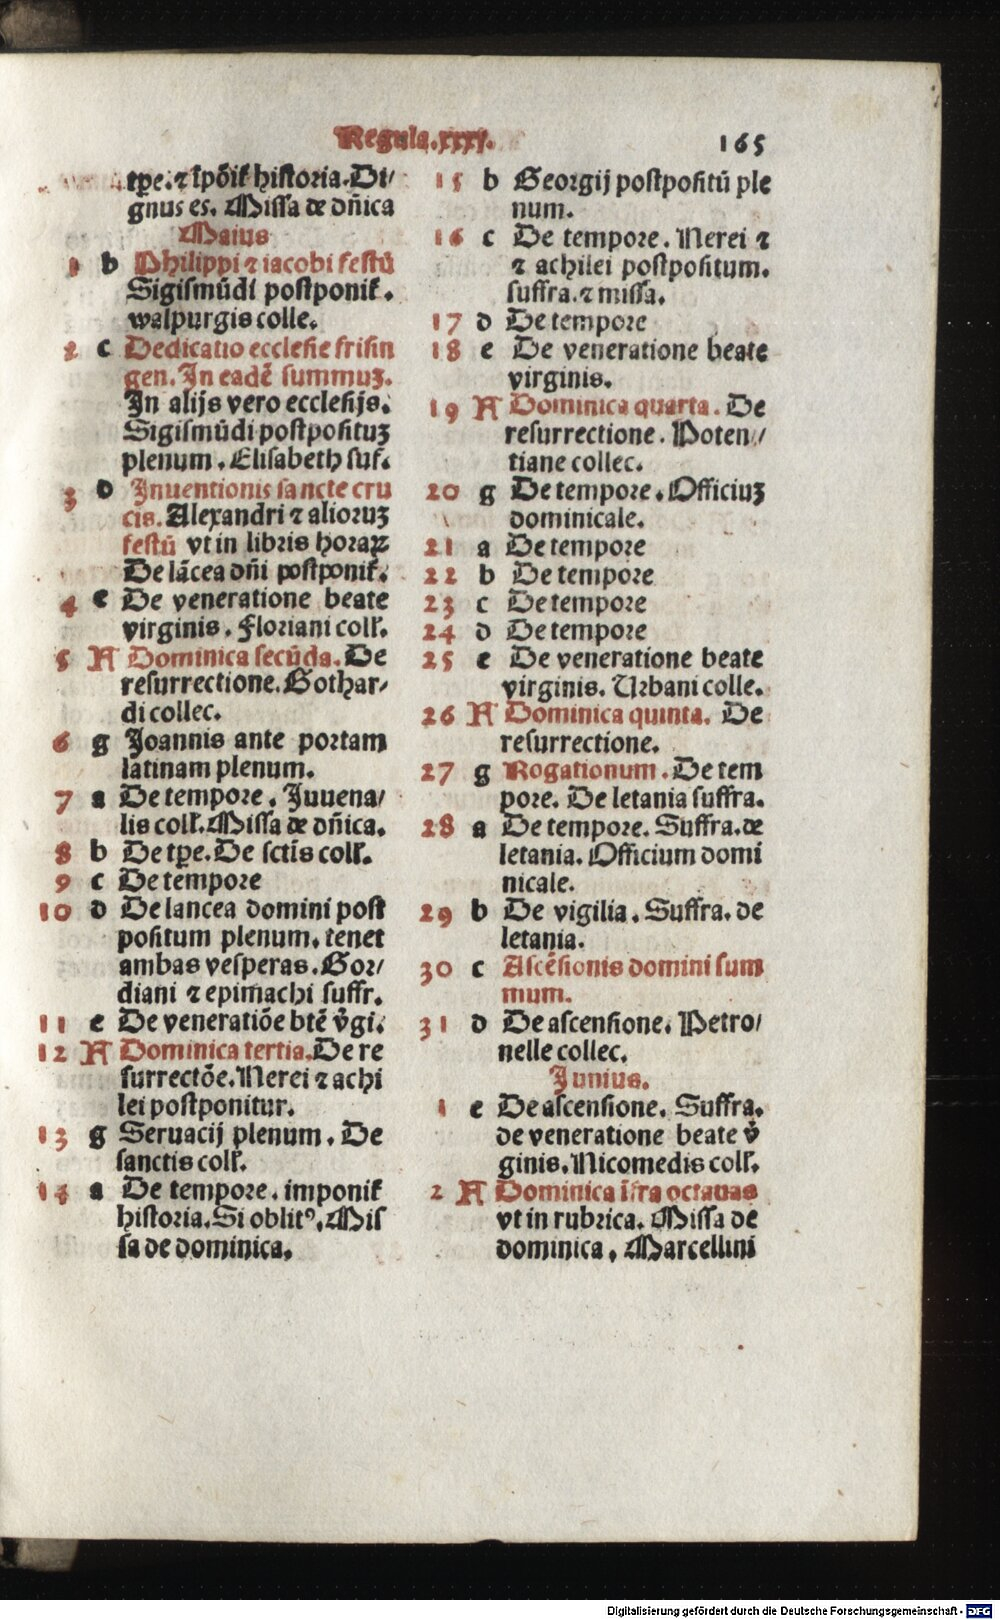 Regula.xxxj. 165
tꝑe. ⁊ ip̄oīt̄ historia. Di/
gnus es. Missa de dn̄ica
Maius
1 b Philippi ⁊ iacobi festū
Sigismūdi postponit̄.
walpurgis colle.
2 c Dedicatio ecclesie frisin
gen. In eadē summuꝫ.
In alijs vero ecclesijs.
Sigismūdi postposituꝫ
plenum. Elisabeth suf.
3 d Inuentionis sancte cru
cis. Alexandri ⁊ alioruꝫ
festū vt in libris horaꝝ
De lācea dn̄i postponit̄.
4 e De veneratione beate
virginis. Floriani coll̄.
5 A Dominica secūda. De
resurrectione. Gothar/
di collec.
6 g Joannis ante portam
latinam plenum.
7 a De tempore. Juuena/
lis coll̄. Missa de dn̄ica.
8 b De tꝑe. De sctīs coll̄.
9 c De tempore
10 d De lancea domini post
positum plenum. tenet
ambas vesperas. Gor/
diani ⁊ epimachi suffr.
11 e De veneratiōe btē v̄gi.
12 A Dominica tertia. De re
surrectōe. Nerei ⁊ achi
lei postponitur.
13 g Seruacij plenum. De
sanctis coll̄.
14 a De tempore. imponit̄
historia. Si oblitꝰ. Mis
sa de dominica.
15 b Georgij postpositū ple
num.
16 c De tempore. Nerei ⁊
⁊ achilei postpositum.
suffra. ⁊ missa.
17 d De tempore
18 e De veneratione beate
virginis.
19 A Dominica quarta. De
resurrectione. Poten/
tiane collec.
20 g De tempore. Officiuꝫ
dominicale.
21 a De tempore
22 b De tempore
23 c De tempore
24 d De tempore
25 e De veneratione beate
virginis. Urbani colle.
26 A Dominica quinta. De
resurrectione.
27 g Rogationum. De tem
pore. De letania suffra.
28 a De tempore. Suffra. de
letania. Officium domi
nicale.
29 b De vigilia. Suffra. de
letania.
30 c Ascēsionis domini sum
mum.
31 d De ascensione. Petro/
nelle collec.
Junius.
1 e De ascensione. Suffra.
de veneratione beate v̄
ginis. Nicomedis coll̄.
2 A Dominica īfra octauas
vt in rubrica. Missa de
dominica. Marcellini
Digitalisierung gefördert durch die Deutsche Forschungsgemeinschaft - DFG